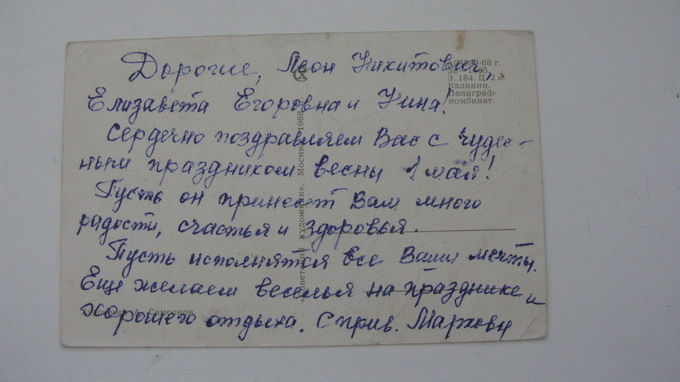 Дорогие, Леон Никитович,
Елизавета Егоровна и Нина!
Сердечно поздравляем Вас с чудес-
ным праздником весны 1 мая!
Пусть он принесёт Вам много
радости, счастья и здоровья.
Пусть исполнятся все Ваши мечты.
Еще желаем веселья на празднике и
хорошего отдыха. С прив. Марковы
68 г.
З. 164. Ц. 2 к.
Калинин.
Полиграф-
комбинат.
художник». Москва. 1968